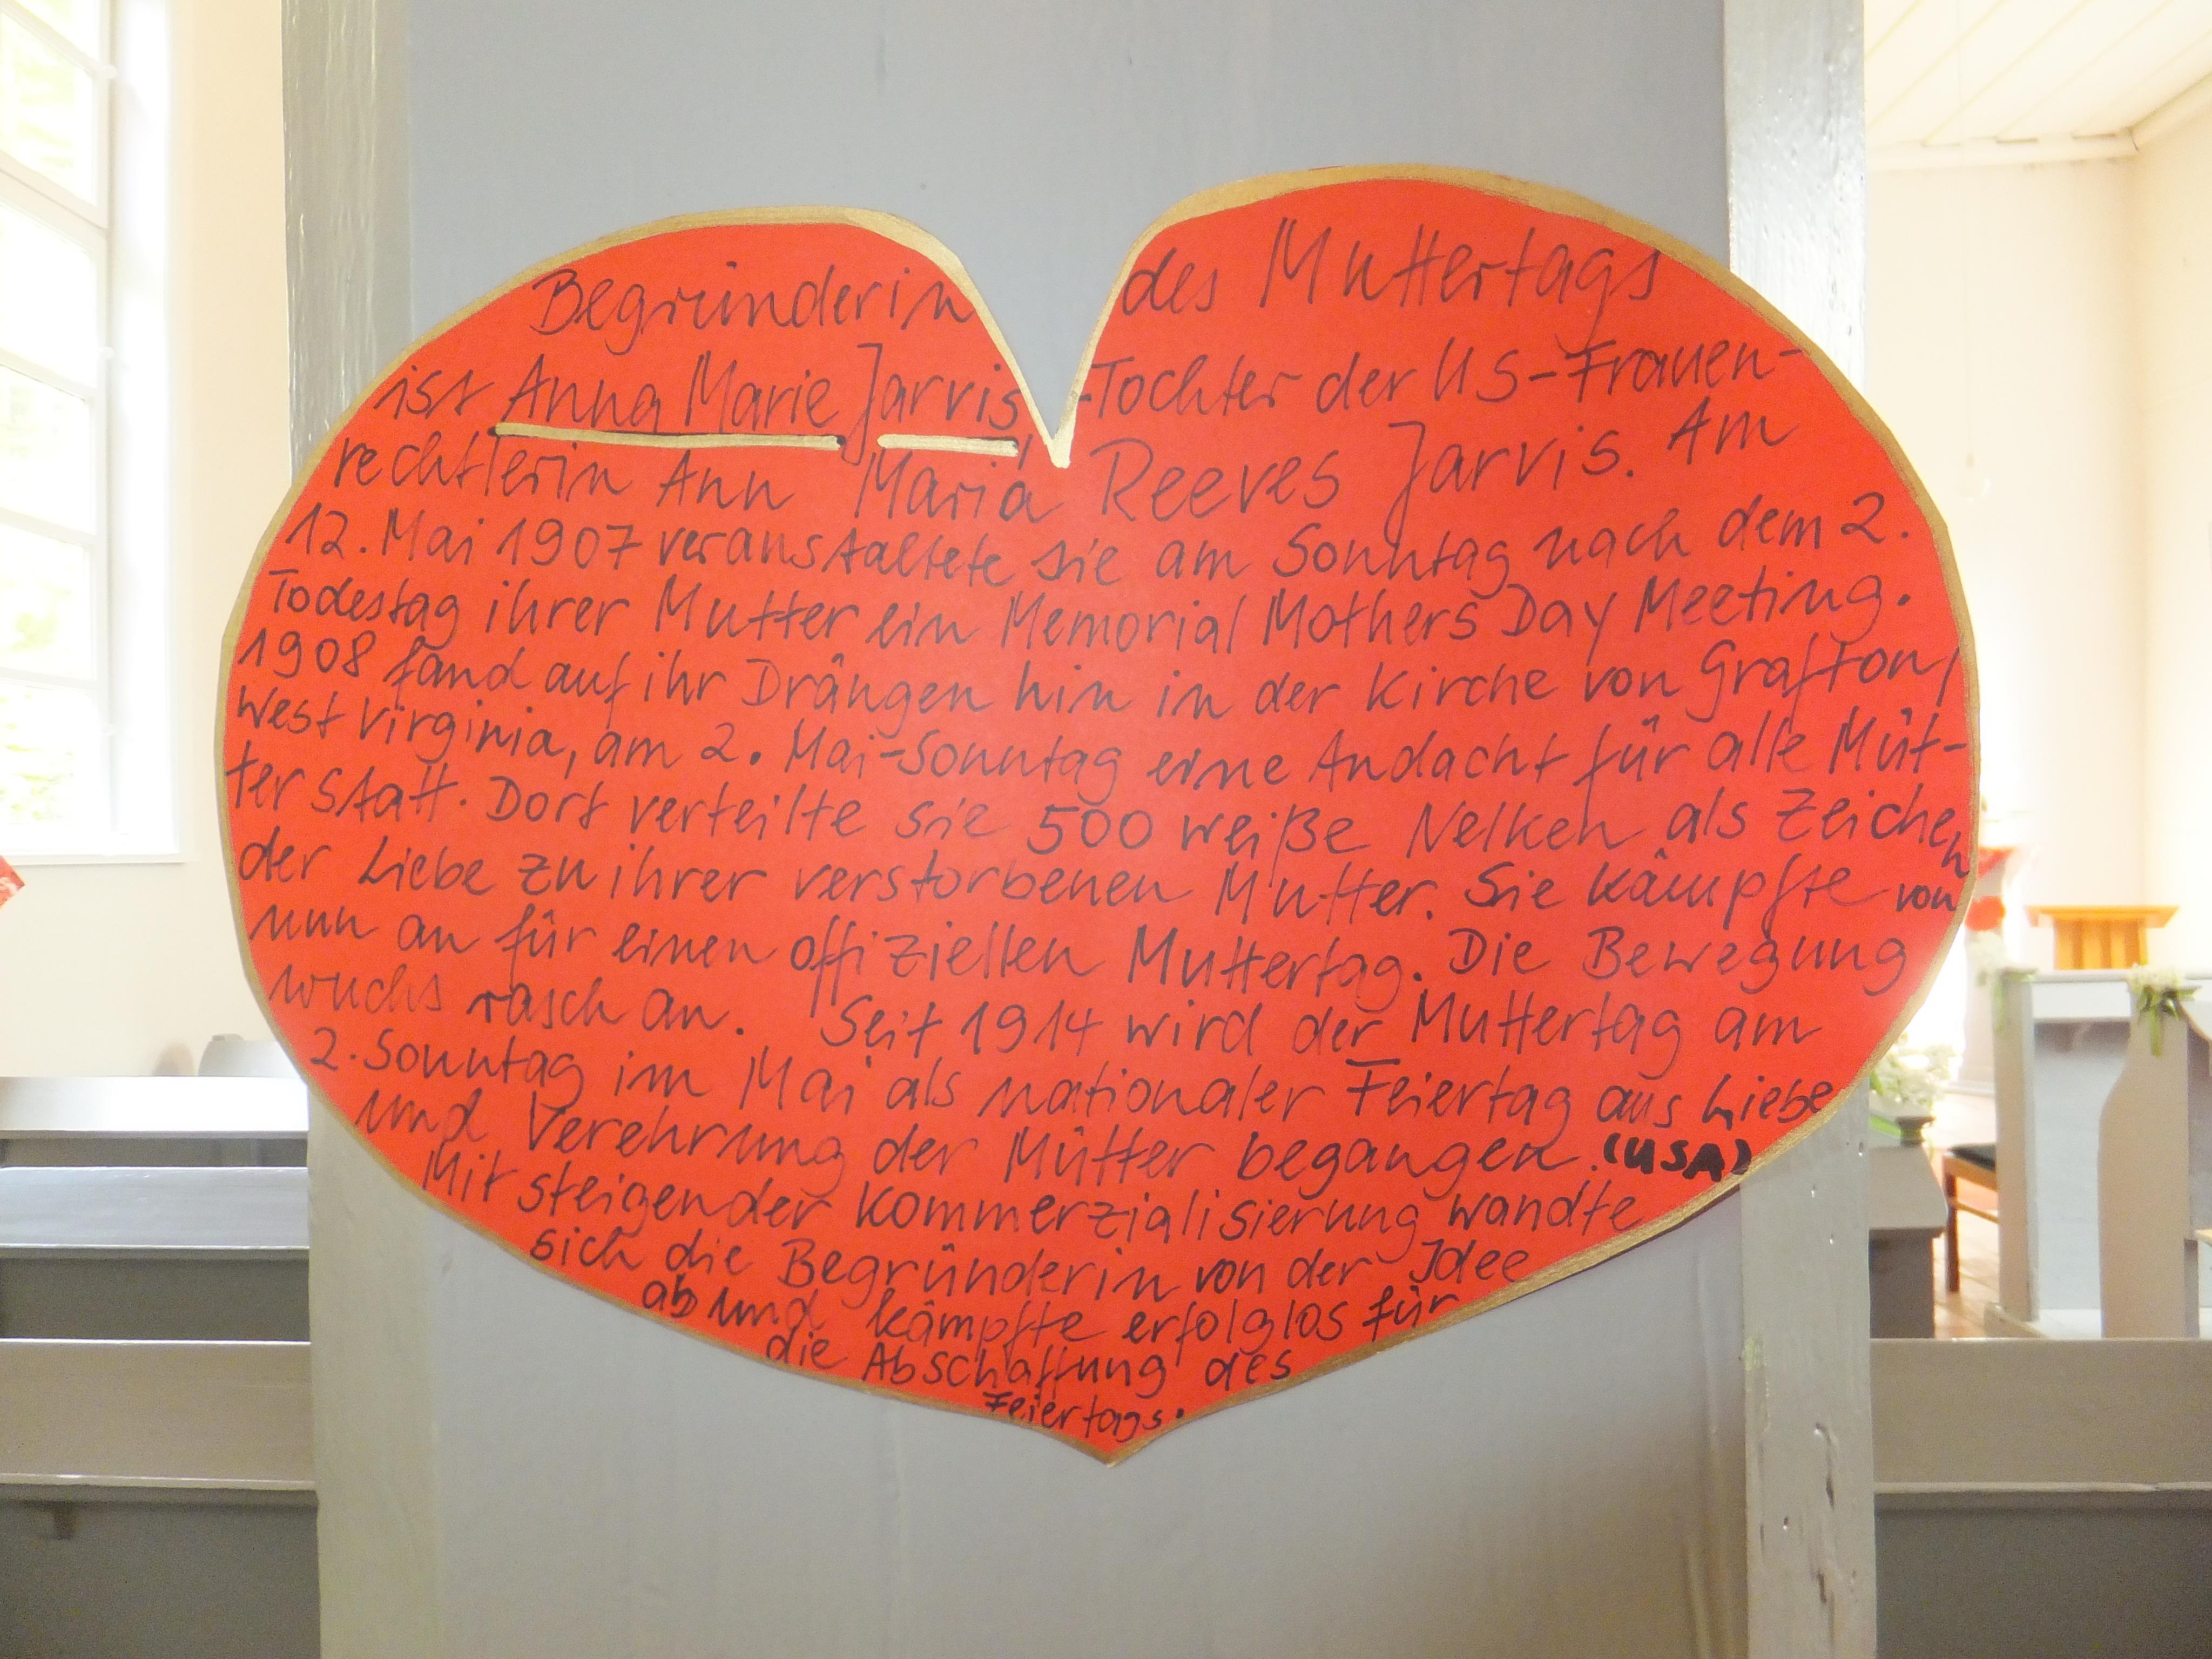 Begründerin des Muttertags
ist Anna Marie Jarvis -Tochter der US-Frauen-
rechtlerin Ann Maria Reeves Jarvis. Am
12. Mai 1907 veranstaltete sie am Sonntag nach dem 2.
Todestag ihrer Mutter ein Memorial Mothers Day Meeting.
1908 fand auf ihr Drängen hin in der Kirche von Grafton,
West Virginia, am 2. Mai-Sonntag eine Andacht für alle Müt-
ter statt. Dort verteilte sie 500 weiße Nelken als Zeichen
der Liebe zu ihrer verstorbenen Mutter. Sie kämpfte von
nun an für einen offiziellen Muttertag. Die Bewegung
wuchs rasch an. Seit 1914 wird der Muttertag am
2. Sonntag im Mai als nationaler Feiertag aus Liebe
und Verehrung der Mütter begangen. (USA)
Mit steigender Kommerzialisierung wandte
sich die Begründerin von der Idee
ab und kämpfte erfolglos für
die Abschaffung des
Feiertags.